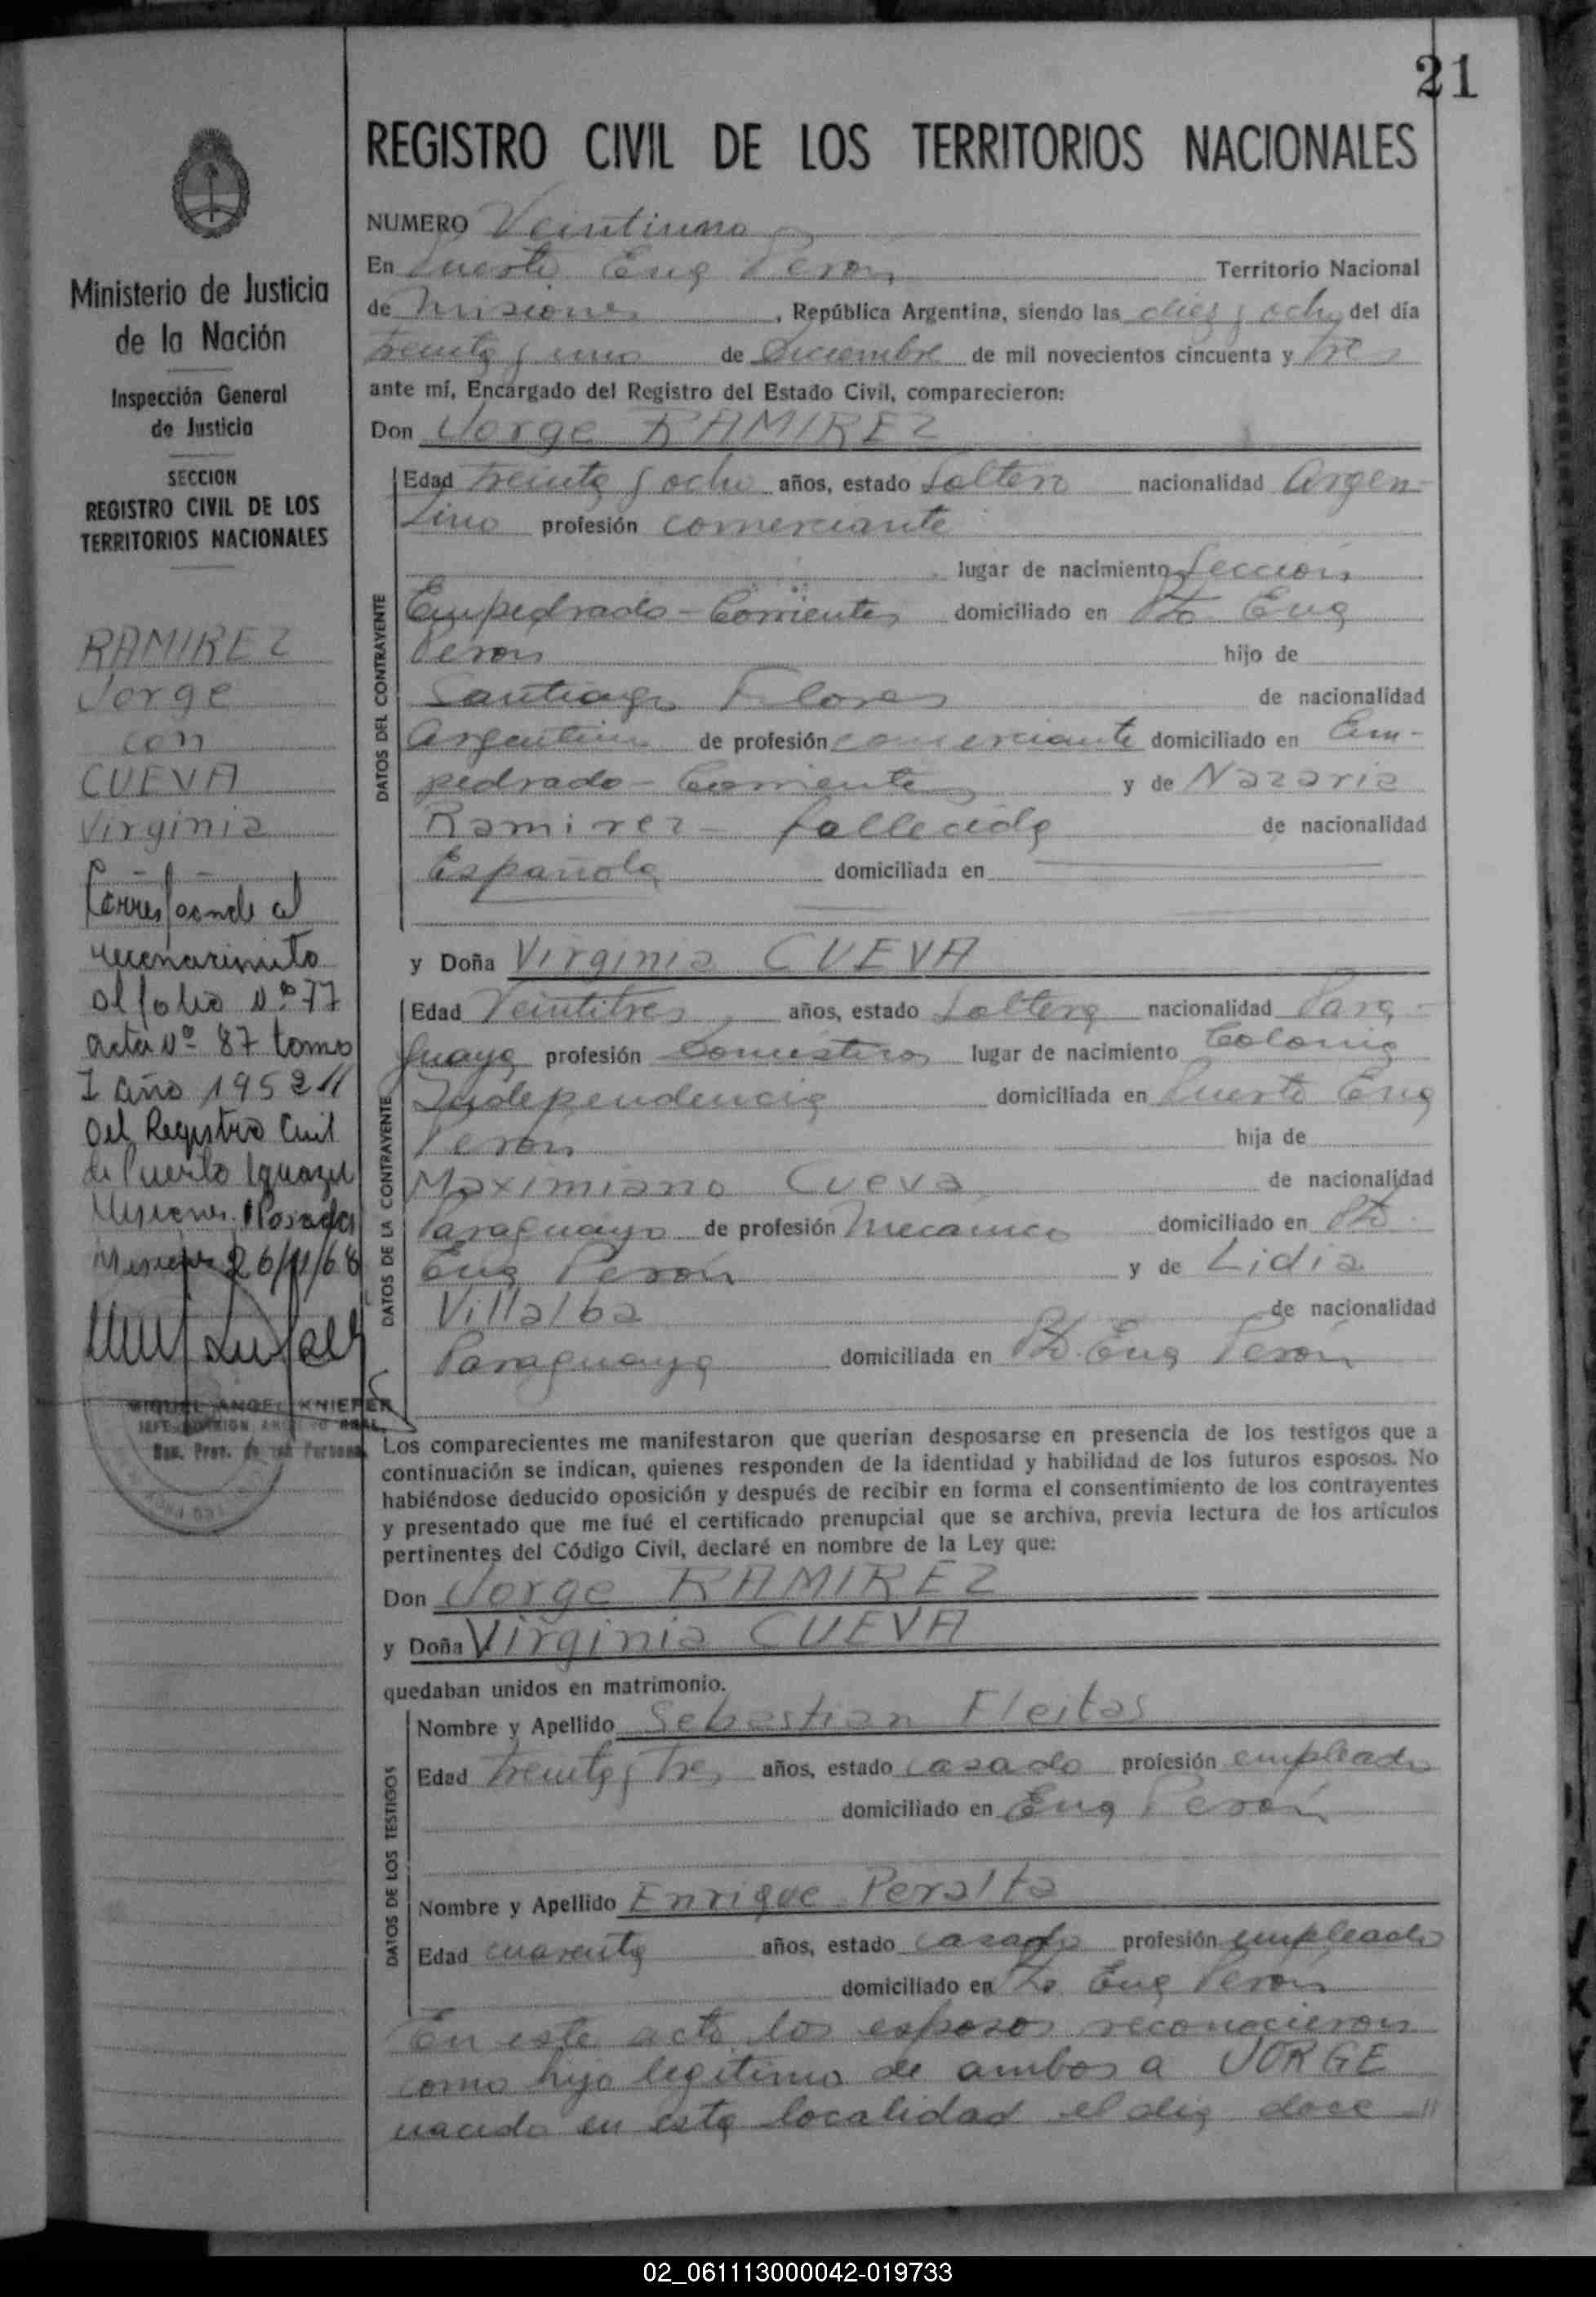 21
REGISTRO CIVIL DE LOS TERRITORIOS NACIONALES
Ministerio de Justicia
de la Nación
Inspección General
de Justicia
SECCION
REGISTRO CIVIL DE LOS
TERRITORIOS NACIONALES
RAMIREZ
Jorge
con
CUEVA
Virginia
Corresponde al
reconocimiento
al folio Nº 77
acta Nº 87 tomo
I año 1952 //
del Registro Civil
de Puerto Iguazu
Misiones. Posadas
Misiones 26/11/68
MIGUEL ANGEL KNIEFER
NUMERO Veintiuno
En Puerto Eva Peron Territorio Nacional
de Misiones, República Argentina, siendo las diez y ocho del día
treinta y uno de Diciembre de mil novecientos cincuenta y tres
ante mí, Encargado del Registro del Estado Civil, comparecieron:
Don Jorge RAMIREZ
DATOS DEL CONTRAYENTE
Edad treinta y ocho años, estado Soltero nacionalidad Argen-
tino profesión comerciante
lugar de nacimiento Sección
Empedrado - Corrientes domiciliado en Pto Eva
Peron hijo de
Santiago Flores de nacionalidad
argentino de profesión comerciante domiciliado en Em-
pedrado - Corrientes y de Nazaria
Ramirez - fallecida de nacionalidad
Española domiciliada en
y Doña Virginia CUEVA
DATOS DE LA CONTRAYENTE
Edad Veintitres años, estado Soltera nacionalidad Para-
guaya profesión Domesticos lugar de nacimiento Colonia
Independencia domiciliada en Puerto Eva
Peron hija de
Maximiano Cueva de nacionalidad
Paraguayo de profesión Mecanico domiciliado en Pto.
Eva Perón y de Lidia
Villalba de nacionalidad
Paraguaya domiciliada en Pto. Eva Perón
Los comparecientes me manifestaron que querían desposarse en presencia de los testigos que a
continuación se indican, quienes responden de la identidad y habilidad de los futuros esposos. No
habiéndose deducido oposición y después de recibir en forma el consentimiento de los contrayentes
y presentado que me fué el certificado prenupcial que se archiva, previa lectura de los artículos
pertinentes del Código Civil, declaré en nombre de la Ley que:
Don Jorge RAMIREZ
y Doña Virginia CUEVA
quedaban unidos en matrimonio.
DATOS DE LOS TESTIGOS
Nombre y Apellido Sebastian Fleitas
Edad treinta y tres años, estado casado profesión empleado
domiciliado en Eva Perón
Nombre y Apellido Enrique Peralta
Edad cuarenta años, estado casado profesión empleado
domiciliado en Pto Eva Peron
En este acto los esposos reconocieron
como hijo legitimo de ambos a JORGE
nacido en esta localidad el dia doce //
02_061113000042-019733